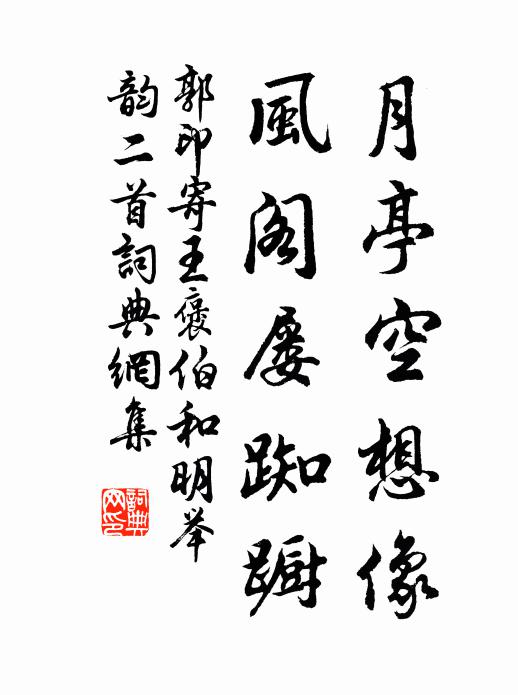 月亭空想像
風阁屡踟蹰
郭印寄王褒伯和明举
韵二首詞典網集
詞典网印